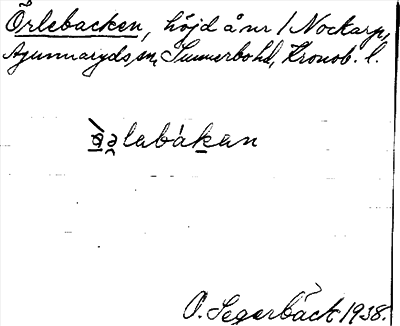 Örlebacken, höjd å nr 1 Nockarp,
Agunnaryds sn, Sunnerbo hd, Kronob. l.
O. Segerbäck 1938.